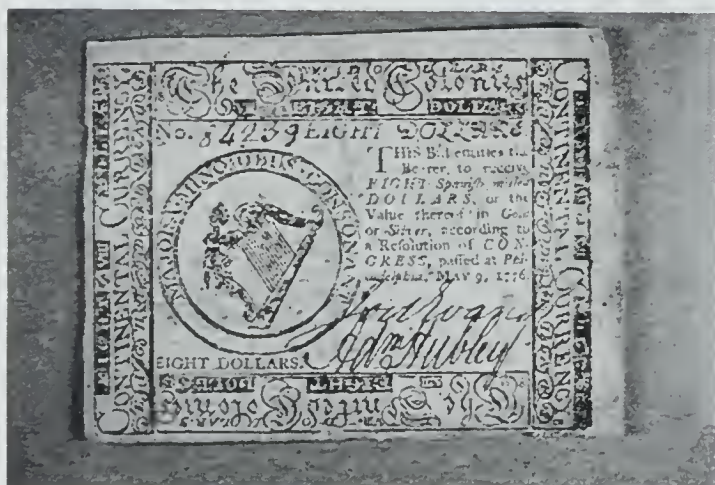 The United Colonies
EIGHT DOLLARS
No. 84239 EIGHT DOLLARS
THIS Bill entitles the
Bearer, to receive
EIGHT Spanish milled
DOLLARS, or the
Value thereof in Gold
or Silver, according to
a Resolution of CON-
GRESS, passed at Phi-
ladelphia, May 9, 1776.
MAJORA MINORIBUS CONSONANT
Adm Hubley
EIGHT DOLLARS.
CONTINENTAL CURRENCY
CONTINENTAL CURRENCY
EIGHT DOLLARS
The United Colonies